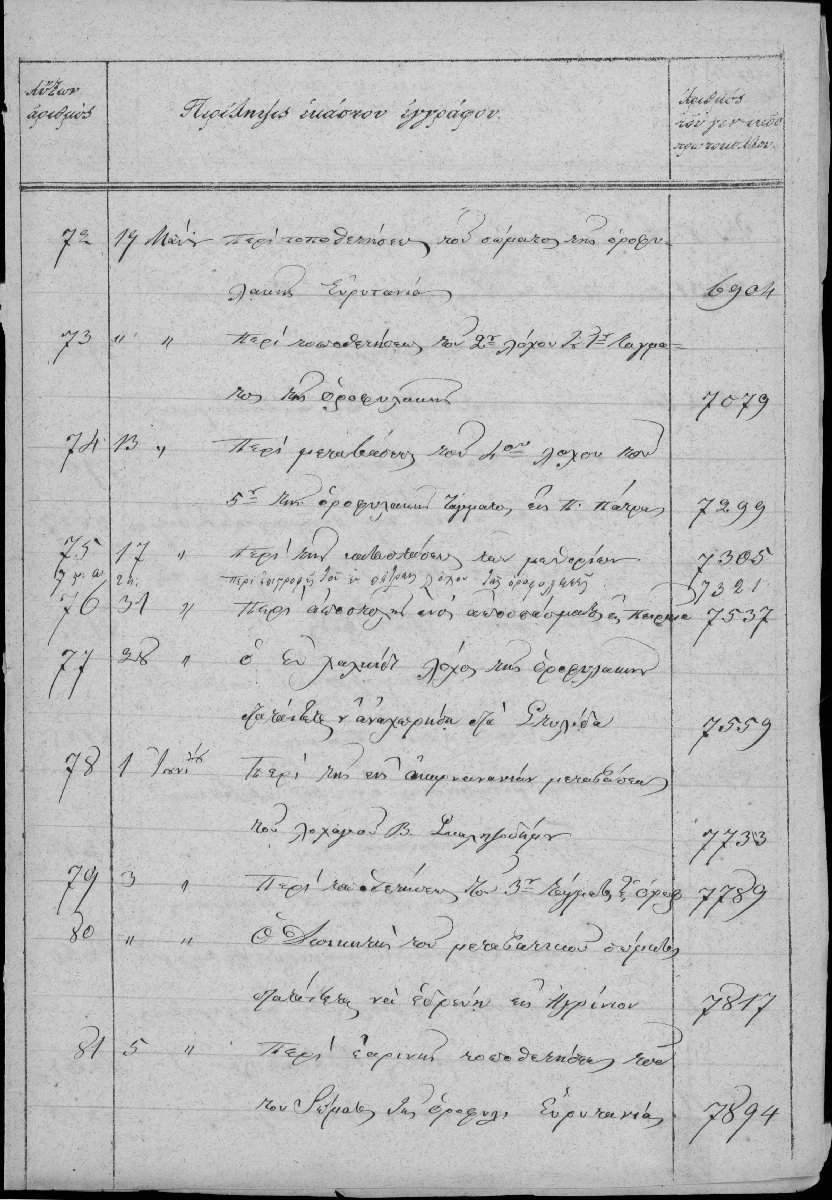 Αὔξων
ἀριθμὸς
Περίληψις ἑκάστου ἐγγράφου.
Ἀριθμὸς
τοῦ γενικοῦ
πρωτοκόλλου.
72 19 Μαΐου Περὶ τοποθετήσεως τοῦ σώματος τῆς ὁροφυ-
λακῆς Εὐρυτανίας 6904
73 " " Περὶ τοποθετήσεως τοῦ 2ου λόχου τοῦ 1ου ταγμα-
τος τῆς ὁροφυλακῆς 7079
74 13 " Περὶ μεταβάσεως τοῦ 4ου λόχου τοῦ
5ου τῆς ὁροφυλακῆς τάγματος εἰς Π. Πάτρας 7299
75 17 " Περὶ τῆς καταστάσεως τῶν 7305
Περὶ ἐπιστροφῆς τοῦ ἐν λόχου τῆς ὁροφυλακῆς 7321
76 31 " Περὶ ἀποστολῆς ἑνὸς ἀποσπάσματος εἰς Πειραιᾶ 7537
77 28 " ὁ ἐν Χαλκίδι λόχος τῆς ὁροφυλακῆς
διατάσσεται ν' ἀναχωρήσῃ διὰ Στυλίδα 7559
78 1 Ἰουνίου Περὶ τῆς εἰς Ἀκαρνανίαν μεταβάσεως
τοῦ λοχαγοῦ Β. 7733
79 3 " Περὶ τοποθετήσεως τοῦ 3ου τάγματος τῆς ὁροφ. 7789
80 " " Ὁ Διοικητὴς τοῦ μεταβατικοῦ σώματος
διατάσσεται νὰ ἑδρεύῃ εἰς Ἀγρίνιον 7817
81 5 " Περὶ ἐαρινῆς τοποθετήσεως τοῦ
του Σώματος τῆς ὁροφυλ. Εὐρυτανίας 7894